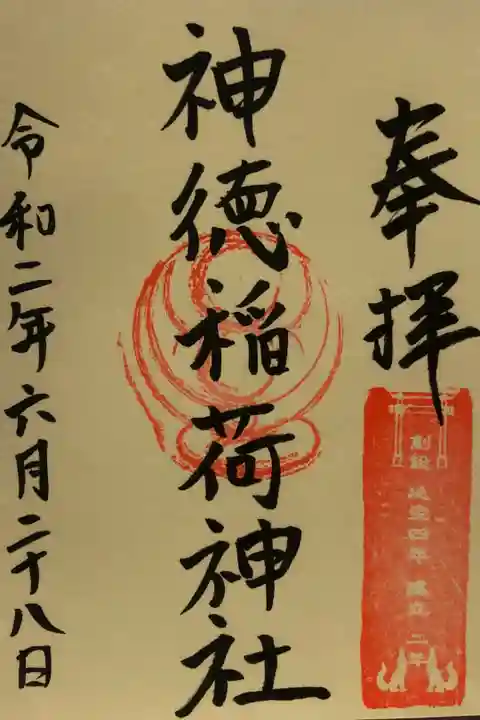 奉拝
創設 延宝四年 建立 二年
神徳稲荷神社
令和二年六月二十八日